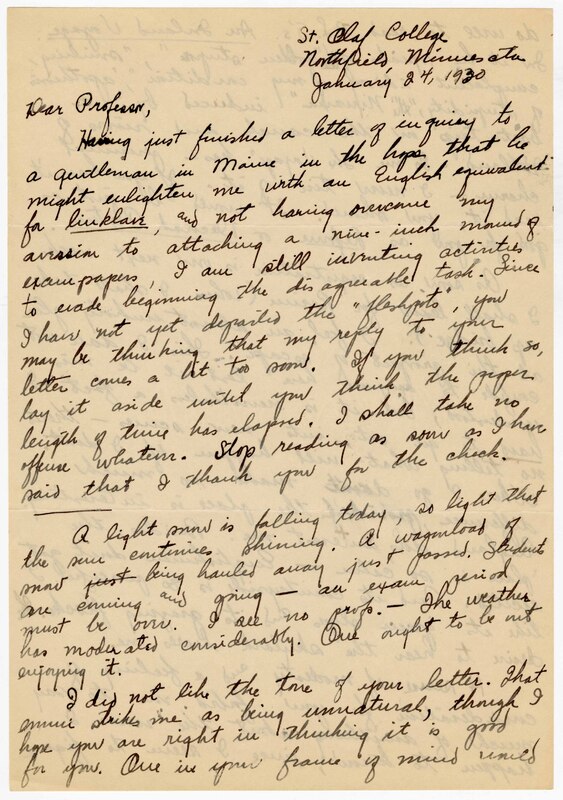 St. Olaf College
Northfield, Minnesota
January 24, 1930
Dear Professor,
Having just finished a letter of inquiry to
a gentleman in Maine in the hope that he
might enlighten me with an English equivalent
for linklav, and not having overcome my
aversion to attacking a nine-inch mound of
exam papers, I am still inventing activities
to evade beginning the disagreeable task. Since
I have not yet departed the "fleshpots", you
may be thinking that my reply to your
letter comes a bit too soon. If you think so,
lay it aside until you think the proper
length of time has elapsed. I shall take no
offense whatever. Stop reading as soon as I have
said that I thank you for the check.
A light snow is falling today, so light that
the sun continues shining. A wagonload of
snow just being hauled away just passed. Students
are coming and going — an exam period
must be over. I see no profs. — The weather
has moderated considerably. One ought to be out
enjoying it.
I did not like the tone of your letter. That
ennui strikes me as being unnatural, though I
hope you are right in thinking it is good
for you. One in your frame of mind would